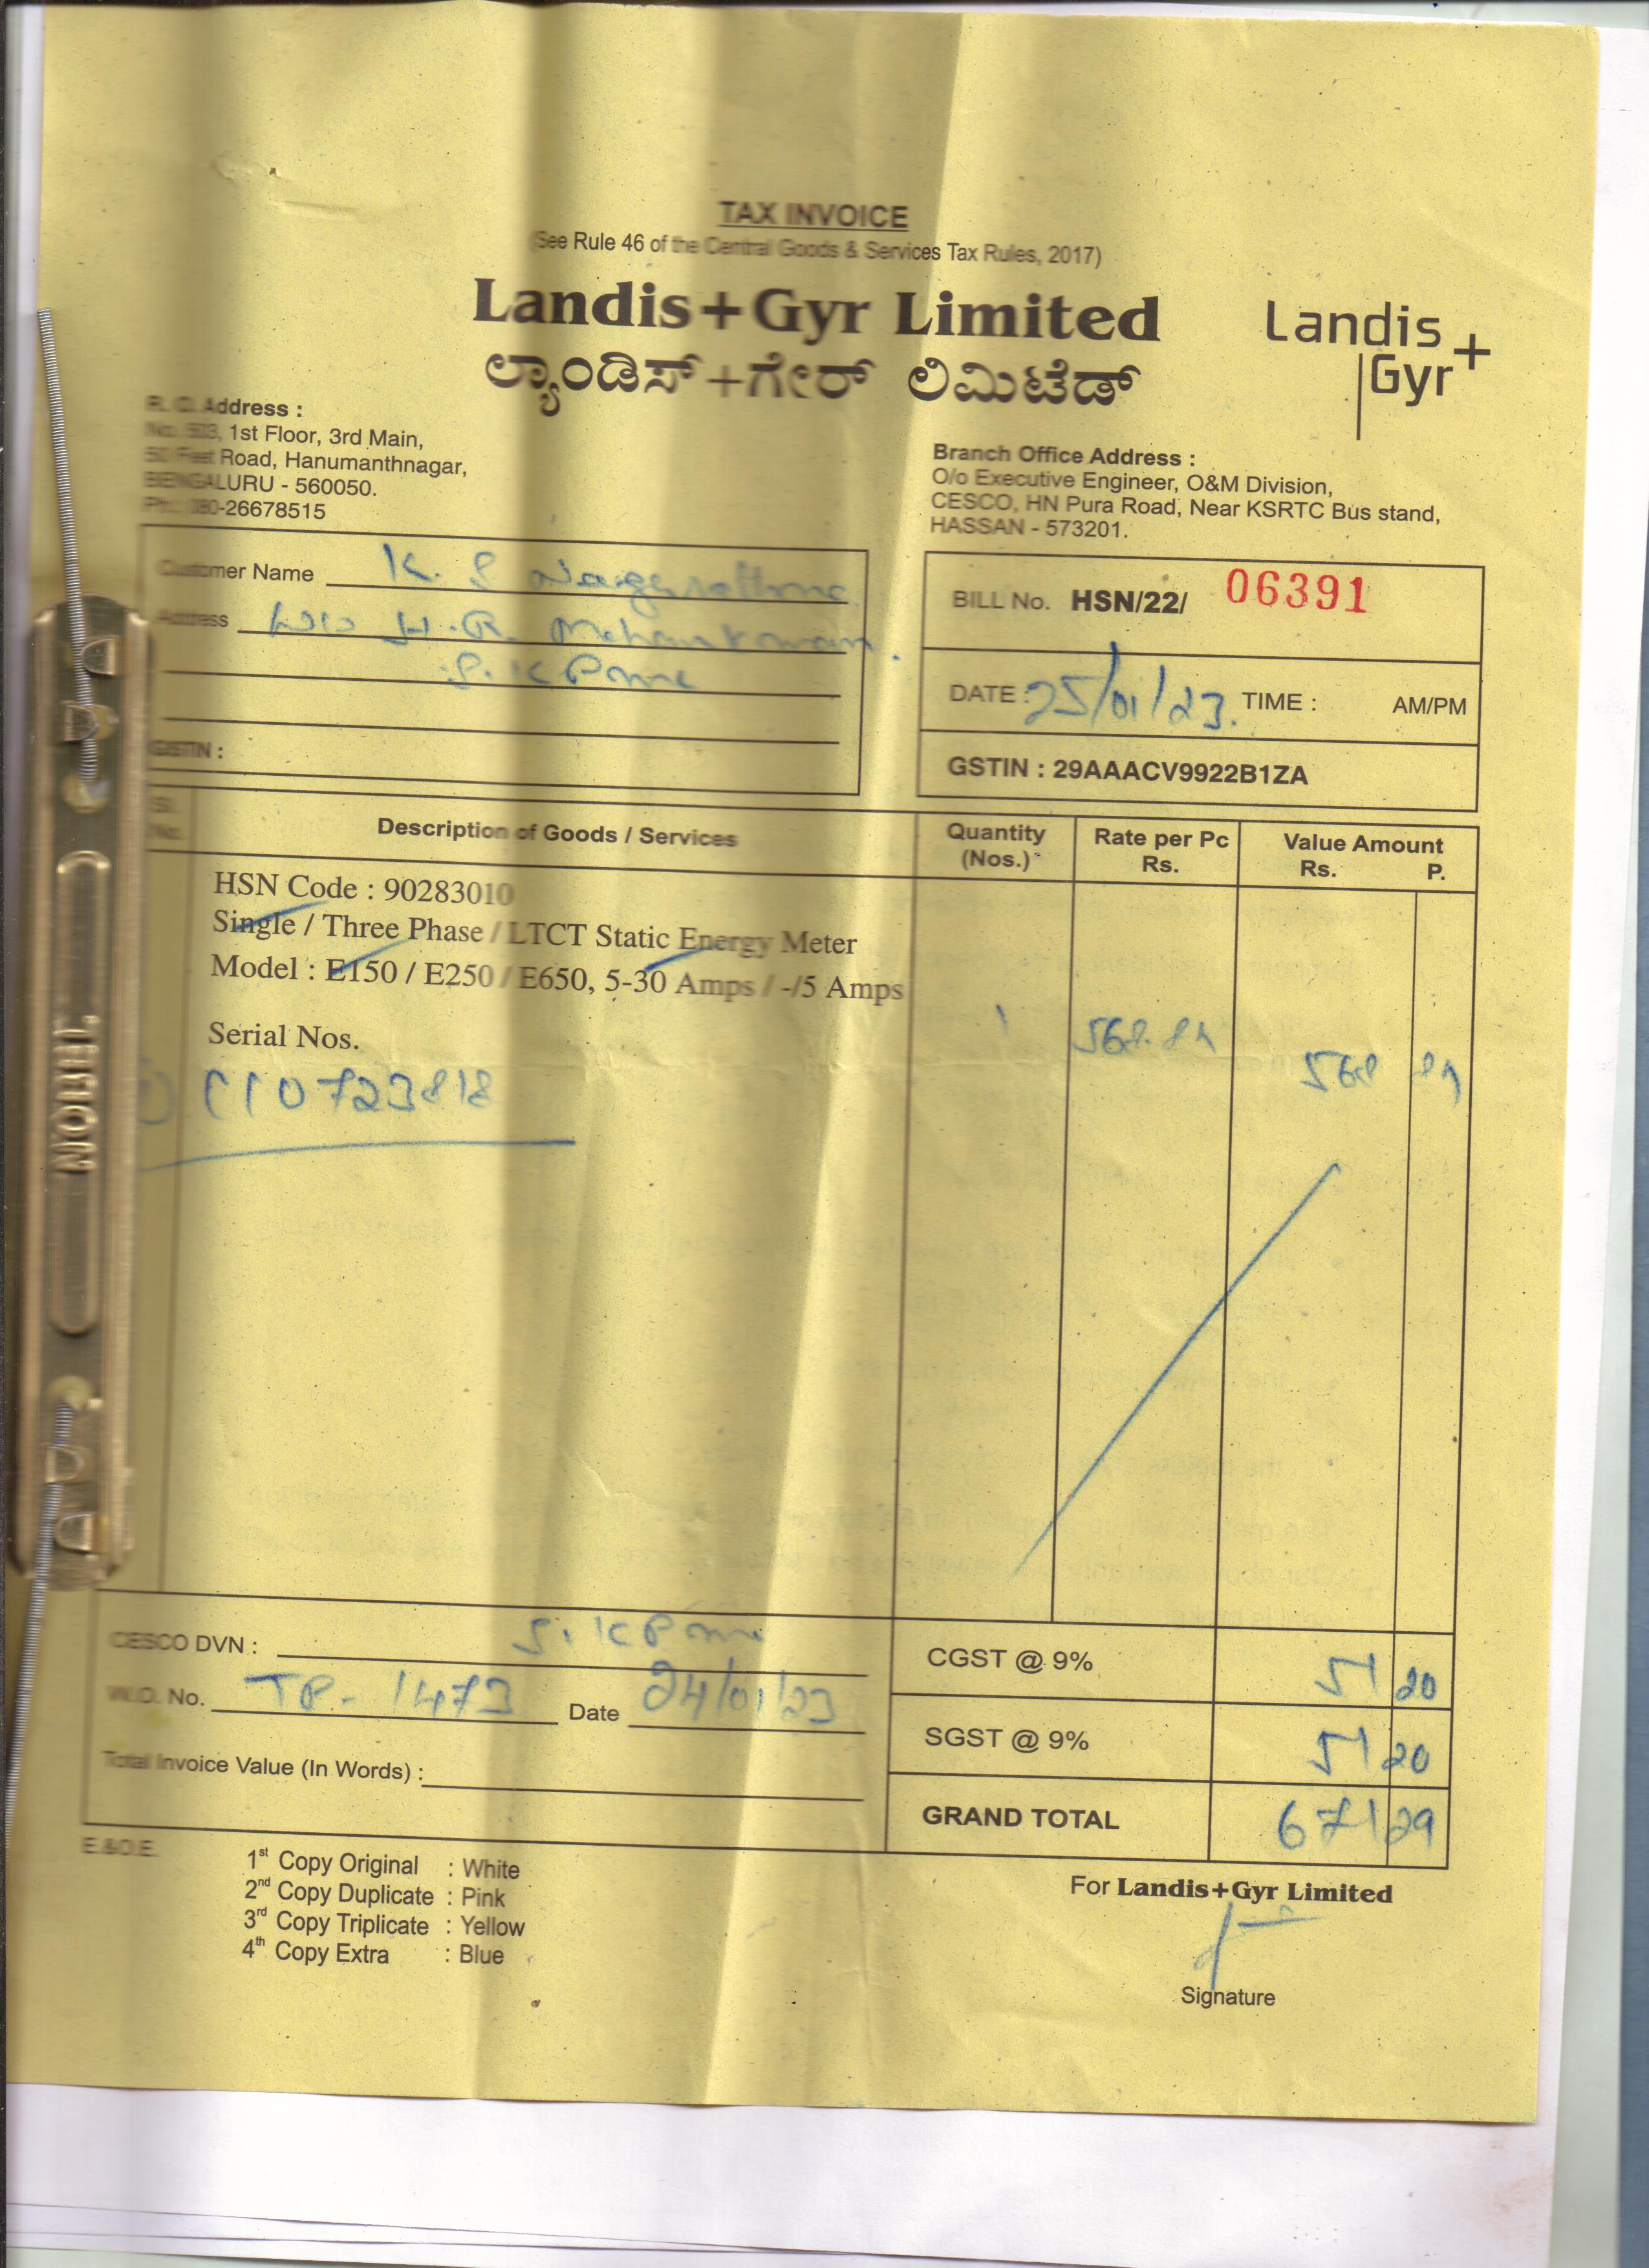 TAX INVOICE
(See Rule 46 of the Central Goods & Services Tax Rules, 2017)
Landis+Gyr Limited
ಲ್ಯಾಂಡಿಸ್+ಗೇರ್ ಲಿಮಿಟೆಡ್
Landis
Gyr+
R. O. Address :
No. 503, 1st Floor, 3rd Main,
50 Feet Road, Hanumanthnagar,
BENGALURU - 560050.
Ph.: 080-26678515
Branch Office Address :
O/o Executive Engineer, O&M Division,
CESCO, HN Pura Road, Near KSRTC Bus stand,
HASSAN - 573201.
Customer Name K. S
Address W/o H.R.
GSTIN :
BILL No. HSN/22/ 06391
DATE : 25/01/23. TIME : AM/PM
GSTIN : 29AAACV9922B1ZA
Sl. No. Description of Goods / Services Quantity (Nos.) Rate per Pc Rs. Value Amount Rs. P.
HSN Code : 90283010
Single / Three Phase / LTCT Static Energy Meter
Model : E150 / E250 / E650, 5-30 Amps / -/5 Amps
Serial Nos. 1 568.89 568 89
110723818
CESCO DVN :
W.O. No. TP- 1473 Date 24/01/23
Total Invoice Value (In Words) :
CGST @ 9% 51 20
SGST @ 9% 51 20
GRAND TOTAL 671 29
E.&O.E.
1st Copy Original : White
2nd Copy Duplicate : Pink
3rd Copy Triplicate : Yellow
4th Copy Extra : Blue
For Landis+Gyr Limited
Signature
NOBEL